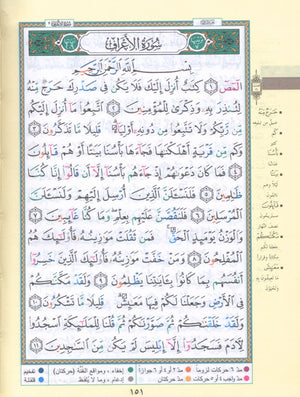 سُورَةُ الْأَعْرَافِ
بِسْمِ اللَّهِ الرَّحْمَٰنِ الرَّحِيمِ
الٓمٓصٓ ۝١ كِتَابٌ أُنزِلَ إِلَيْكَ فَلَا يَكُن فِي صَدْرِكَ حَرَجٌ مِّنْهُ
لِتُنذِرَ بِهِ وَذِكْرَىٰ لِلْمُؤْمِنِينَ ۝٢ اتَّبِعُوا مَا أُنزِلَ إِلَيْكُم
مِّن رَّبِّكُمْ وَلَا تَتَّبِعُوا مِن دُونِهِ أَوْلِيَاءَ قَلِيلًا مَّا تَذَكَّرُونَ ۝٣
وَكَم مِّن قَرْيَةٍ أَهْلَكْنَاهَا فَجَاءَهَا بَأْسُنَا بَيَاتًا أَوْ هُمْ قَائِلُونَ
۝٤ فَمَا كَانَ دَعْوَاهُمْ إِذْ جَاءَهُم بَأْسُنَا إِلَّا أَن قَالُوا إِنَّا كُنَّا
ظَالِمِينَ ۝٥ فَلَنَسْأَلَنَّ الَّذِينَ أُرْسِلَ إِلَيْهِمْ وَلَنَسْأَلَنَّ
الْمُرْسَلِينَ ۝٦ فَلَنَقُصَّنَّ عَلَيْهِم بِعِلْمٍ وَمَا كُنَّا غَائِبِينَ ۝٧
وَالْوَزْنُ يَوْمَئِذٍ الْحَقُّ فَمَن ثَقُلَتْ مَوَازِينُهُ فَأُولَٰئِكَ هُمُ
الْمُفْلِحُونَ ۝٨ وَمَنْ خَفَّتْ مَوَازِينُهُ فَأُولَٰئِكَ الَّذِينَ خَسِرُوا
أَنفُسَهُم بِمَا كَانُوا بِآيَاتِنَا يَظْلِمُونَ ۝٩ وَلَقَدْ مَكَّنَّاكُمْ
فِي الْأَرْضِ وَجَعَلْنَا لَكُمْ فِيهَا مَعَايِشَ قَلِيلًا مَّا تَشْكُرُونَ ۝١٠
وَلَقَدْ خَلَقْنَاكُمْ ثُمَّ صَوَّرْنَاكُمْ ثُمَّ قُلْنَا لِلْمَلَائِكَةِ اسْجُدُوا
لِآدَمَ فَسَجَدُوا إِلَّا إِبْلِيسَ لَمْ يَكُن مِّنَ السَّاجِدِينَ ۝١١
حَرَجٌ مِنْهُ
كَم
بَأْسُنَا
بَيَاتًا
قَائِلُونَ
مَكَّنَّاكُمْ
مَعَايِشَ
مد ٦ حركات لزوماً مد ٢ أو ٤ أو ٦ جوازاً إخفاء، ومواقع الغنّة (حركتان) تفخيم
مد واجب ٤ أو ٥ حركات مد حركتان إدغام، وما لا يُلفظ قلقلة
١٥١